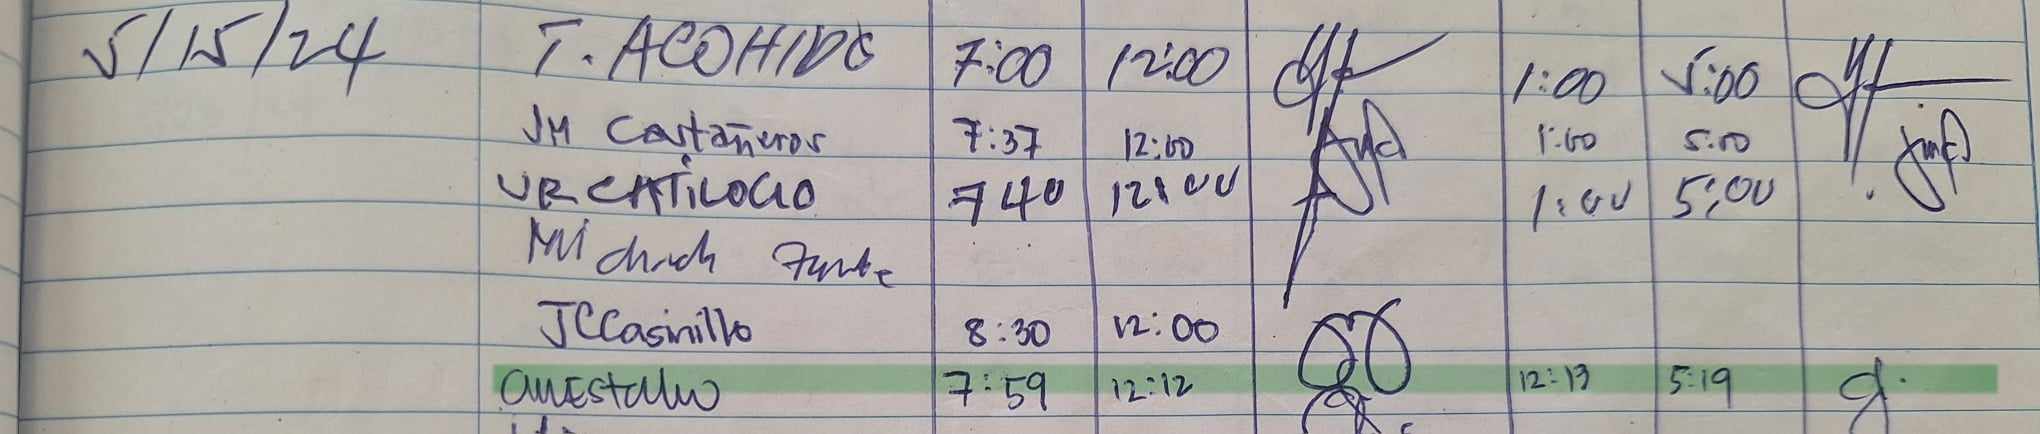 5/15/24 T. ACOHIDO 7:00 12:00 1:00 5:00
JM Castañeros 7:37 12:00 1:00 5:00
VR CATiLOGO 740 12:00 1:00 5:00
JCCasinillo 8:30 12:00
7:59 12:12 12:13 5:19